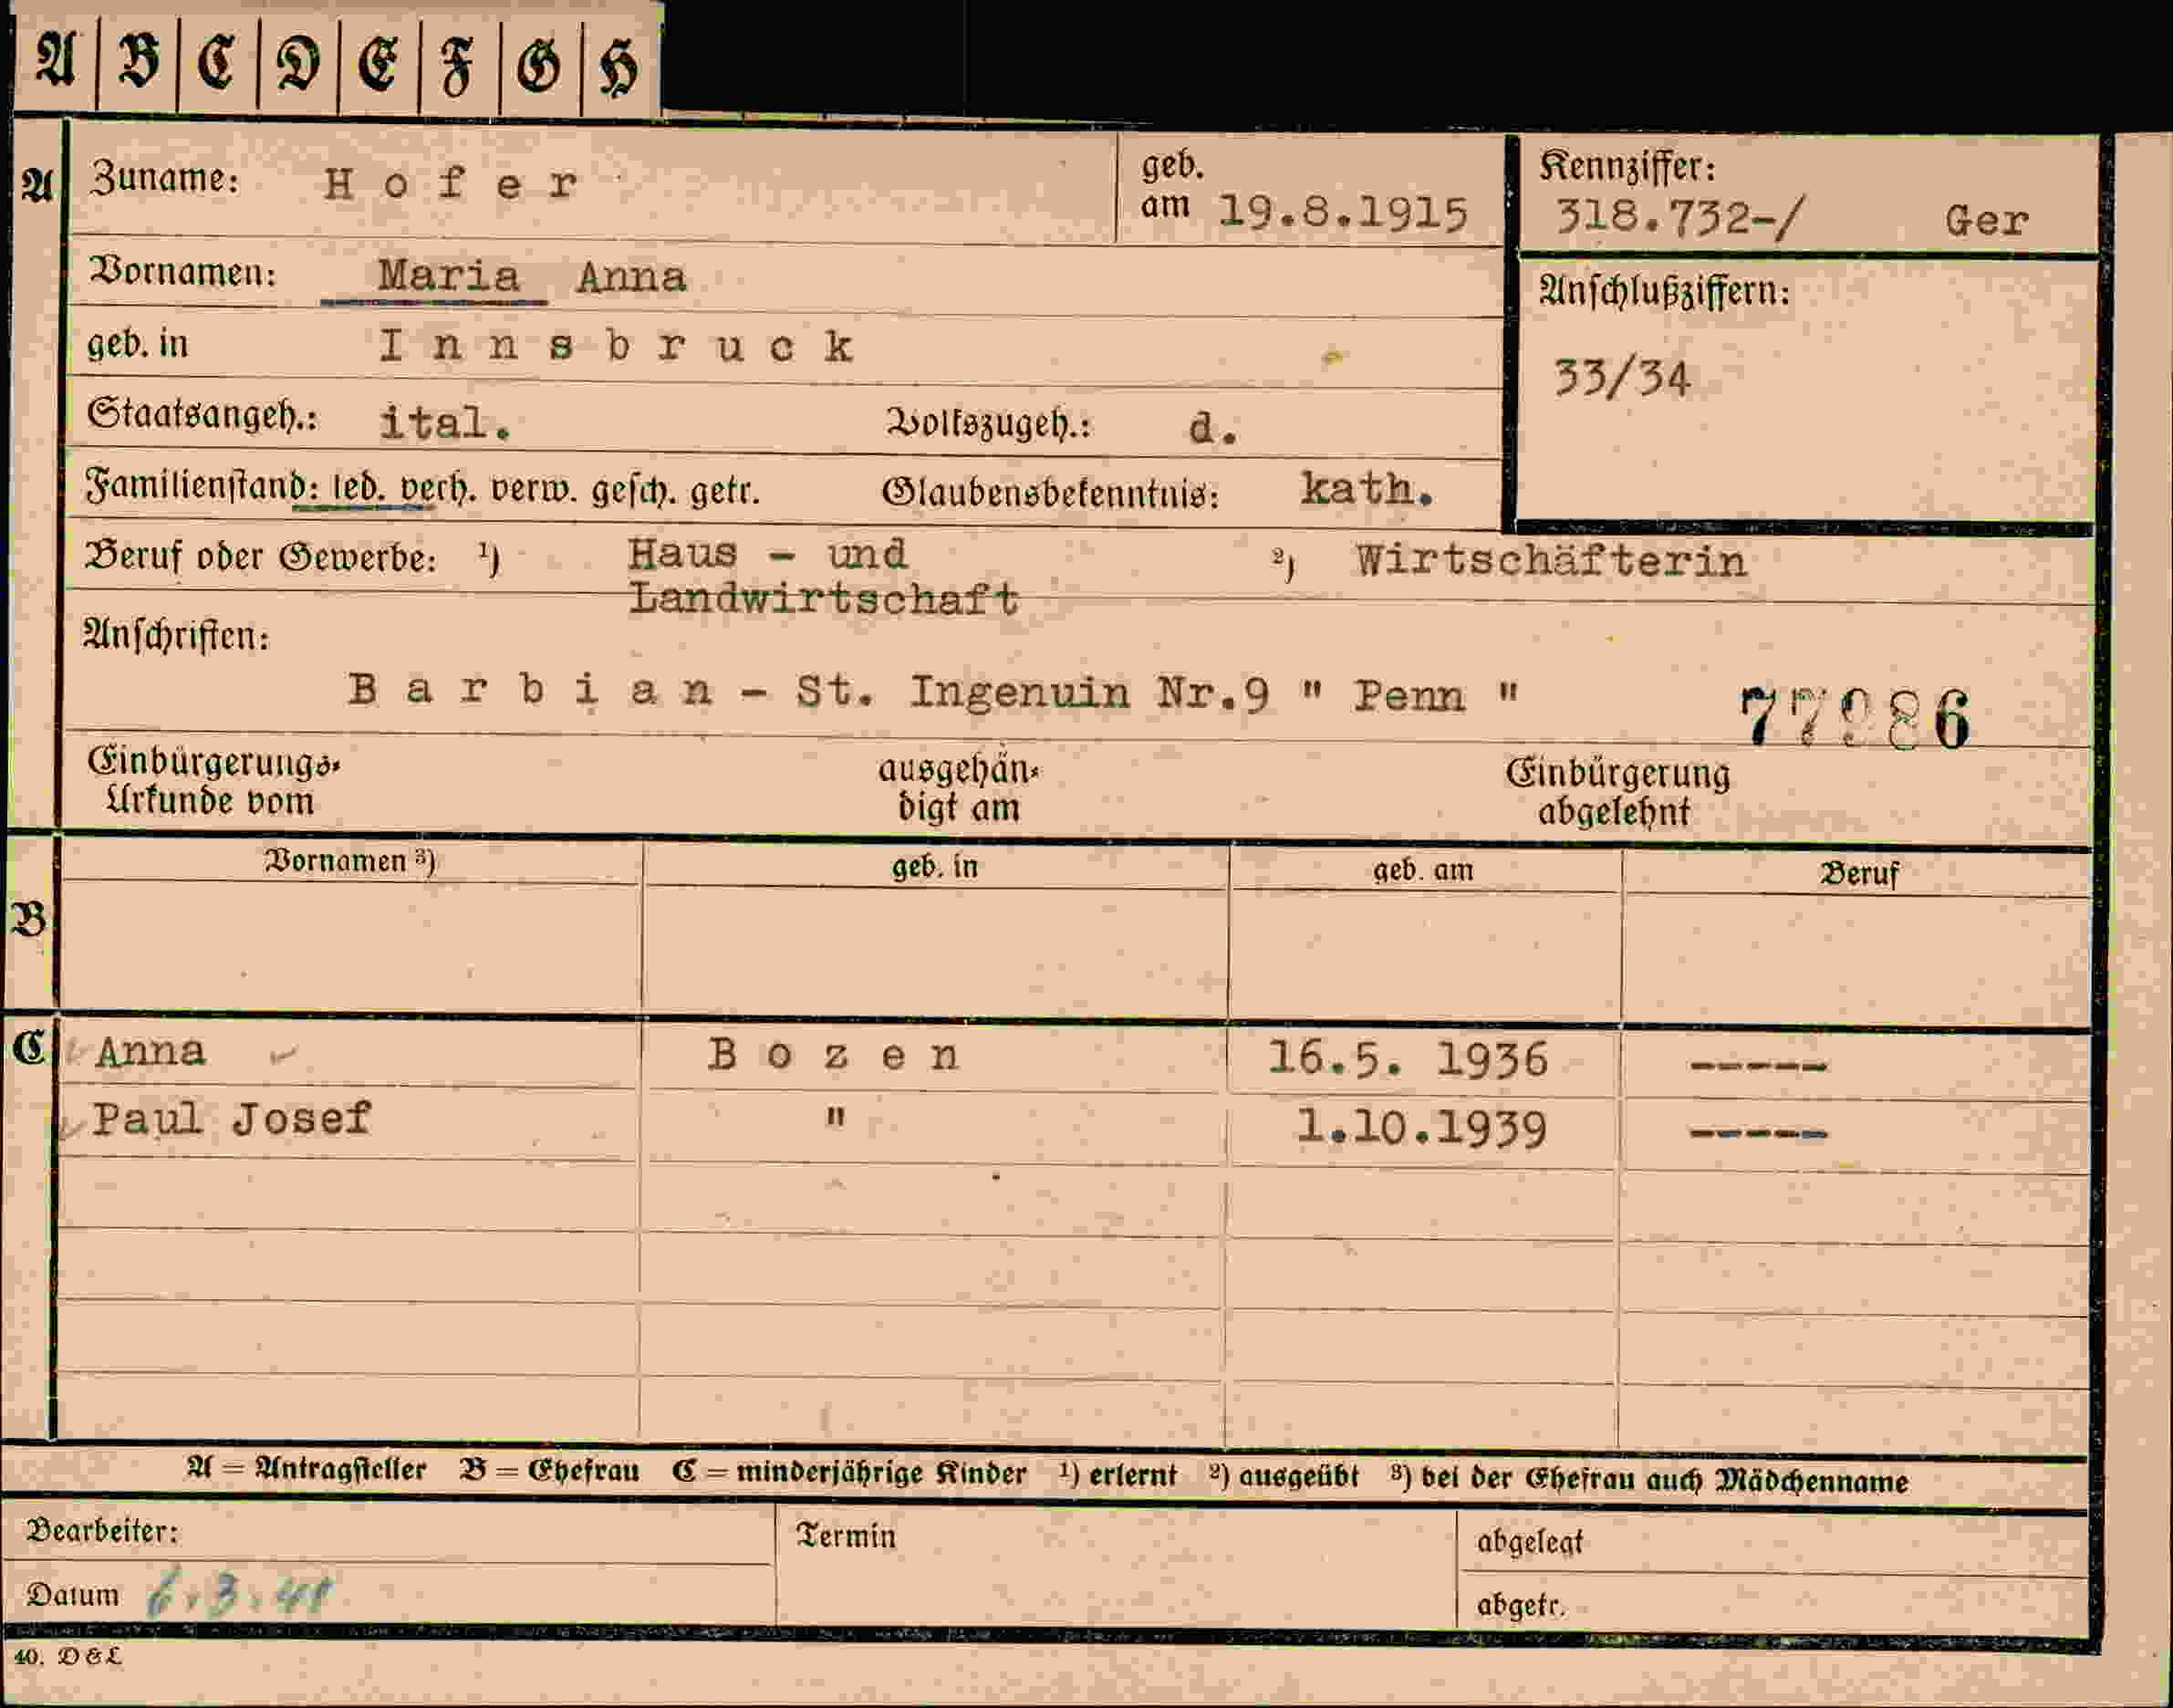 A B C D E F G H
A Zuname: Hofer geb. am 19.8.1915 Kennziffer: 318.732-/ Ger
Vornamen: Maria Anna Anschlußziffern:
geb. in Innsbruck 33/34
Staatsangeh.: ital. Volkszugeh.: d.
Familienstand: led. verh. verw. gesch. getr. Glaubensbekenntnis: kath.
Beruf oder Gewerbe: 1) Haus - und 2) Wirtschäfterin
Landwirtschaft
Anschriften:
Barbian - St. Ingenuin Nr.9 " Penn "
Einbürgerungs- ausgehän- Einbürgerung
Urkunde vom digt am abgelehnt
Vornamen 3) geb. in geb. am Beruf
B
C Anna Bozen 16.5. 1936 -----
Paul Josef " 1.10.1939 -----
A = Antragsteller B = Ehefrau C = minderjährige Kinder 1) erlernt 2) ausgeübt 3) bei der Ehefrau auch Mädchenname
Bearbeiter: Termin abgelegt
Datum 6.3.41 abgetr.
40. D & L